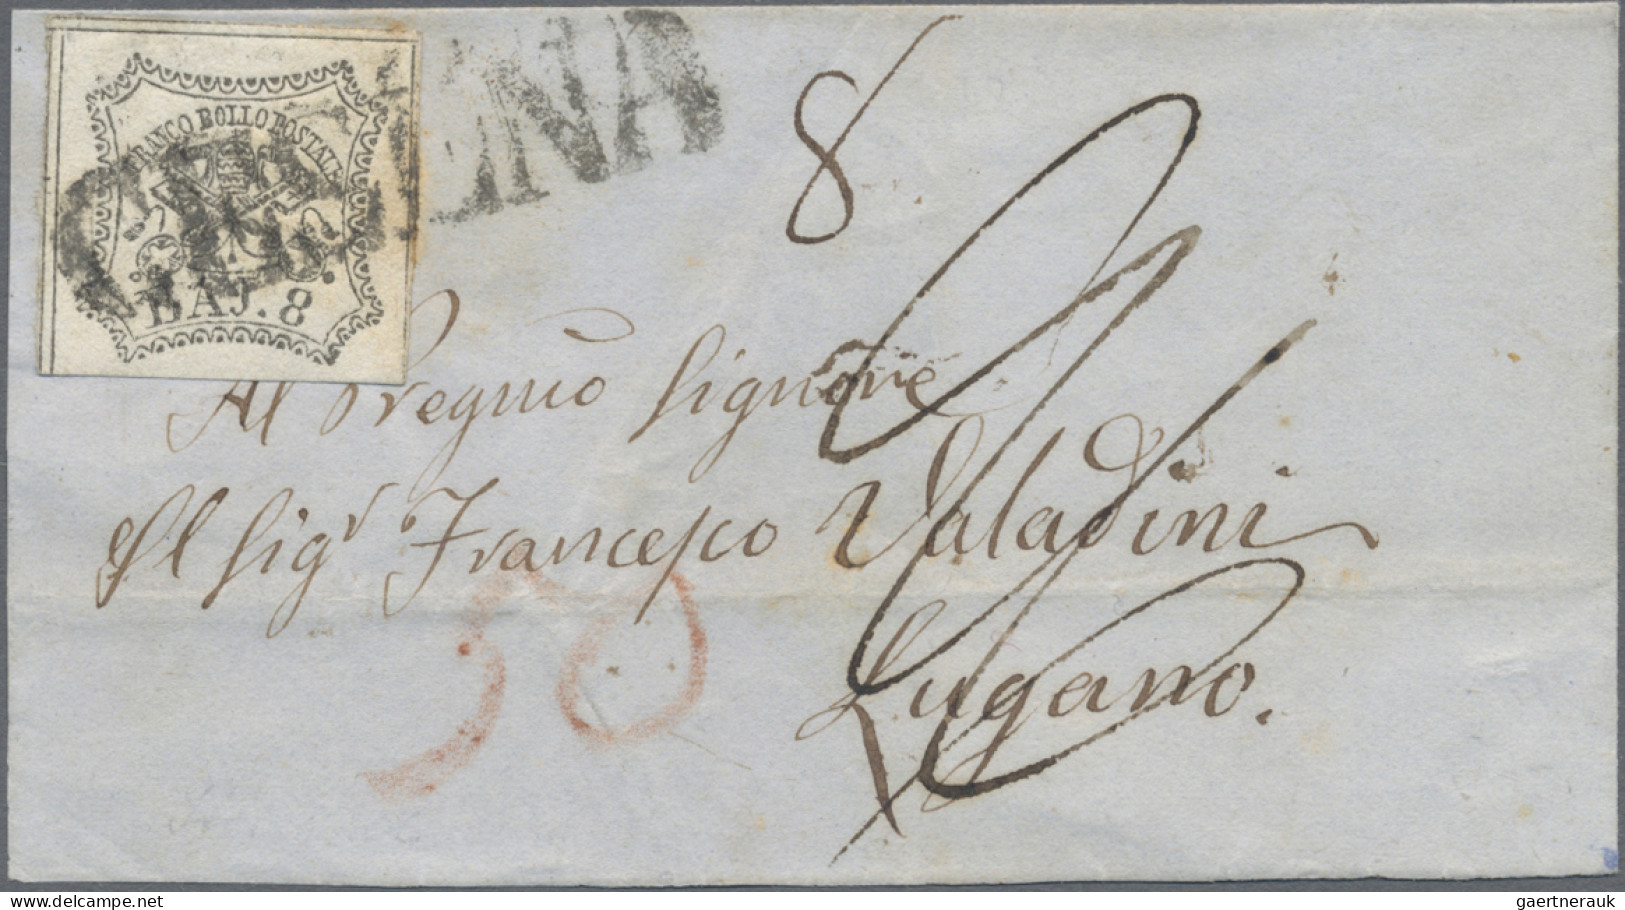 FRANCO BOLLO POSTALE
BAJ. 8
8
Al Pregmo Signore
Il Sigr Francesco Valadini
Lugano.
30
delcampe.net
gaertnerauk